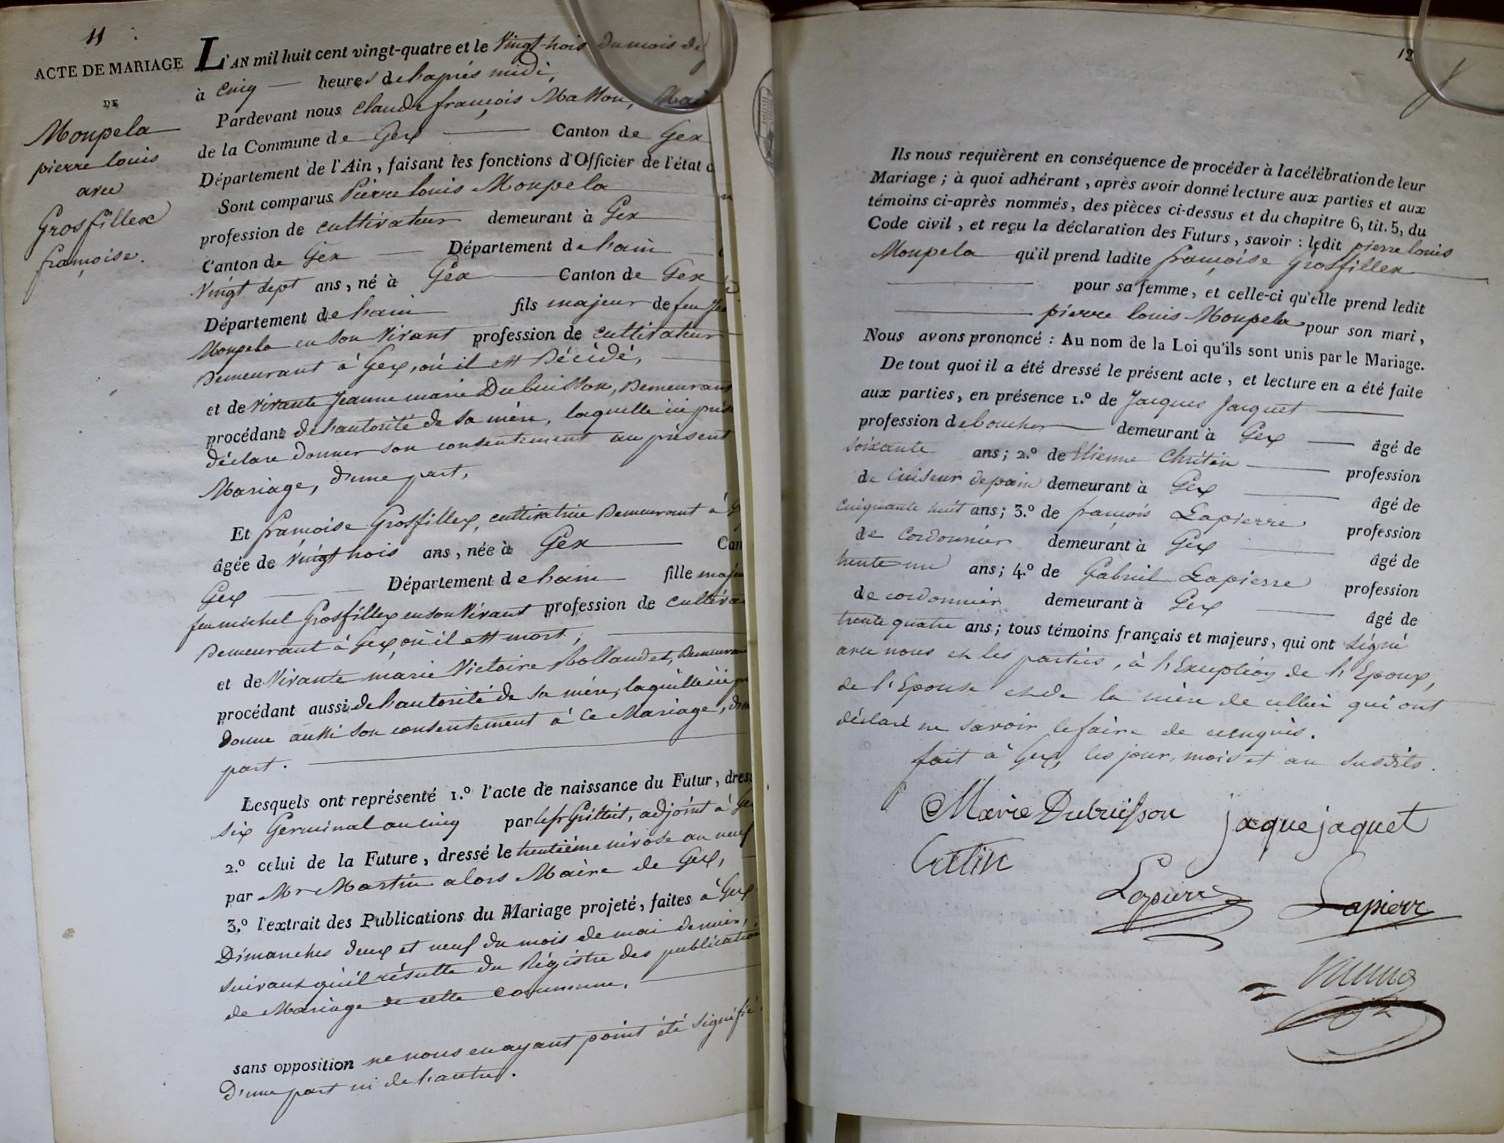 11
ACTE DE MARIAGE
DE
Monpela
pierre louis
avec
Grosfillex
françoise.
L'AN mil huit cent vingt-quatre et le Vingt trois du mois de
à Cinq heures de l'après midi,
Pardevant nous Claude françois Matton, Mai
de la Commune de Gex Canton de Gex
Département de l'Ain, faisant les fonctions d'Officier de l'état c
Sont comparus Pierre louis Monpela
profession de cultivateur demeurant à Gex
Canton de Gex Département de l'ain
Vingt sept ans, né à Gex Canton de Gex
Département de l'ain fils majeur de feu
Monpela en son Vivant profession de cultivateur
Demeurant à Gex, où il est Décédé,
et de Vivante Jeanne marie Dubuisson, Demeurant
procédant de l'autorité de sa mère, laquelle ici prés
déclare donner son consentement au présent
Mariage, d'une part,
Et françoise Grosfillex, cultivatrice Demeurant à G
âgée de vingt trois ans, née à Gex Can
Gex Département de l'ain fille maje
feu michel Grosfillex en son Vivant profession de cultiva
Demeurant à Gex, où il est mort,
et de Vivante marie Victoire Rolland et, Demeuran
procédant aussi de l'autorité de sa mère, laquelle ici p
donne aussi son consentement à ce Mariage, d'au
part.
Lesquels ont représenté 1.º l'acte de naissance du Futur, dres
six Germinal an cinq par le sr adjoint à Ge
2.º celui de la Future, dressé le trentième nivose an neuf
par Mr Martin alors Maire de Gex,
3.º l'extrait des Publications du Mariage projeté, faites à Gex
Dimanches deux et neuf du mois de mai dernier,
suivant qu'il résulte du Régistre des publications
de Mariage de cette Commune.
sans opposition ne nous en ayant point été signifié
D'une part ni de l'autre.
12
Ils nous requièrent en conséquence de procéder à la célébration de leur
Mariage; à quoi adhérant, après avoir donné lecture aux parties et aux
témoins ci-après nommés, des pièces ci-dessus et du chapitre 6, tit. 5, du
Code civil, et reçu la déclaration des Futurs, savoir : ledit pierre louis
Monpela qu'il prend ladite françoise Grosfillex
pour sa femme, et celle-ci qu'elle prend ledit
pierre louis Monpela pour son mari,
Nous avons prononcé : Au nom de la Loi qu'ils sont unis par le Mariage.
De tout quoi il a été dressé le présent acte, et lecture en a été faite
aux parties, en présence 1.º de Jacques Jacquet
profession de boucher demeurant à Gex âgé de
soixante ans; 2.º de Etienne Chrétin profession
de Cuiseur de pain demeurant à Gex âgé de
Cinquante huit ans; 3.º de françois Lapierre profession
de Cordonnier demeurant à Gex âgé de
trente un ans; 4.º de Gabriel Lapierre profession
de cordonnier demeurant à Gex âgé de
trente quatre ans; tous témoins français et majeurs, qui ont signé
avec nous et les parties, à l'Exception de l'Epoux,
de l'Epouse et de la mère de celleci qui ont
déclaré ne savoir le faire de ce enquis.
fait à Gex, les jour, mois et an susdits.
Marie Dubuisson jaque jaquet
Cretin
Lapierre Lapierre